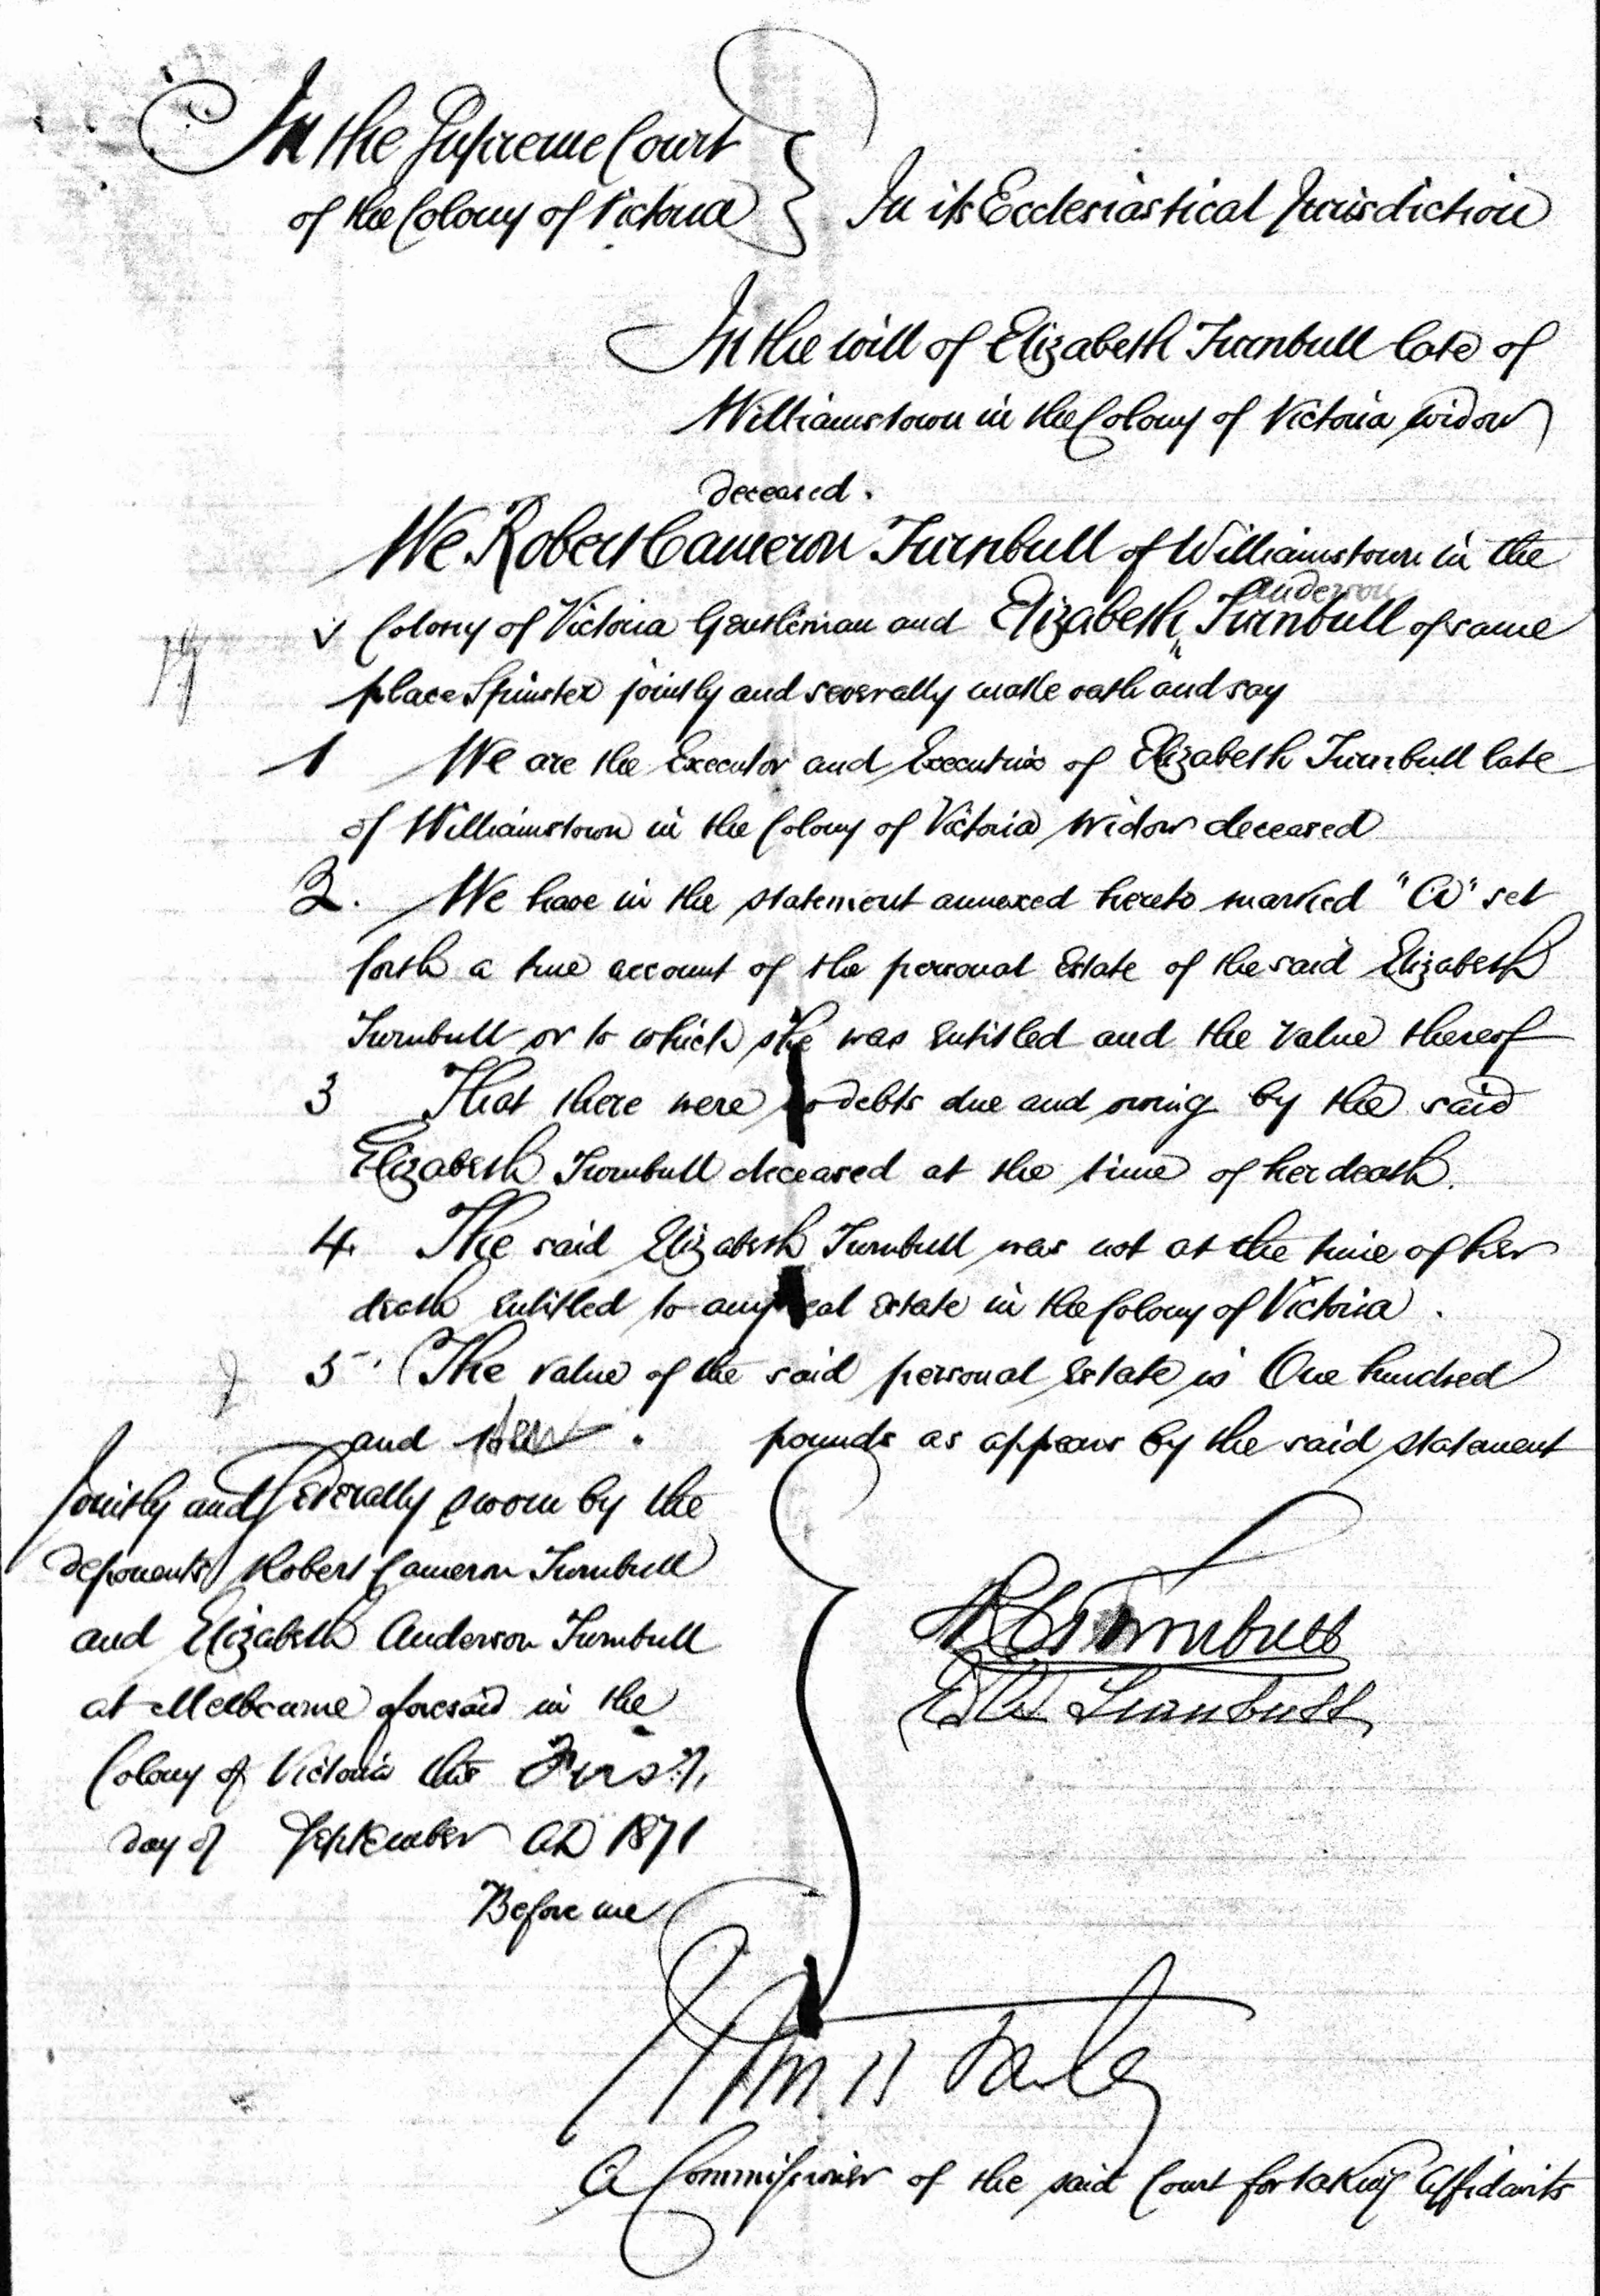 In the Supreme Court
of the Colony of Victoria
In its Ecclesiastical Jurisdiction
In the will of Elizabeth Turnbull late of
Williamstown in the Colony of Victoria widow
deceased.
We Robert Cameron Turnbull of Williamstown in the
Anderson
Colony of Victoria Gentleman and Elizabeth Turnbull of same
place Spinster jointly and severally make oath and say
1 We are the Executor and Executrix of Elizabeth Turnbull late
of Williamstown in the Colony of Victoria Widow deceased
2. We have in the statement annexed hereto marked "A" set
forth a true account of the personal Estate of the said Elizabeth
Turnbull or to which she was entitled and the value thereof
3 That there were no debts due and owing by the said
Elizabeth Turnbull deceased at the time of her death.
4. The said Elizabeth Turnbull was not at the time of her
death entitled to any real Estate in the Colony of Victoria.
5. The value of the said personal Estate is One hundred
and pounds as appears by the said statement
Jointly and Severally sworn by the
deponents Robert Cameron Turnbull
and Elizabeth Anderson Turnbull
at Melbourne aforesaid in the
Colony of Victoria this First
day of September AD 1871
Before me
R C Turnbull
E A Turnbull
A Commissioner of the said Court for taking Affidavits